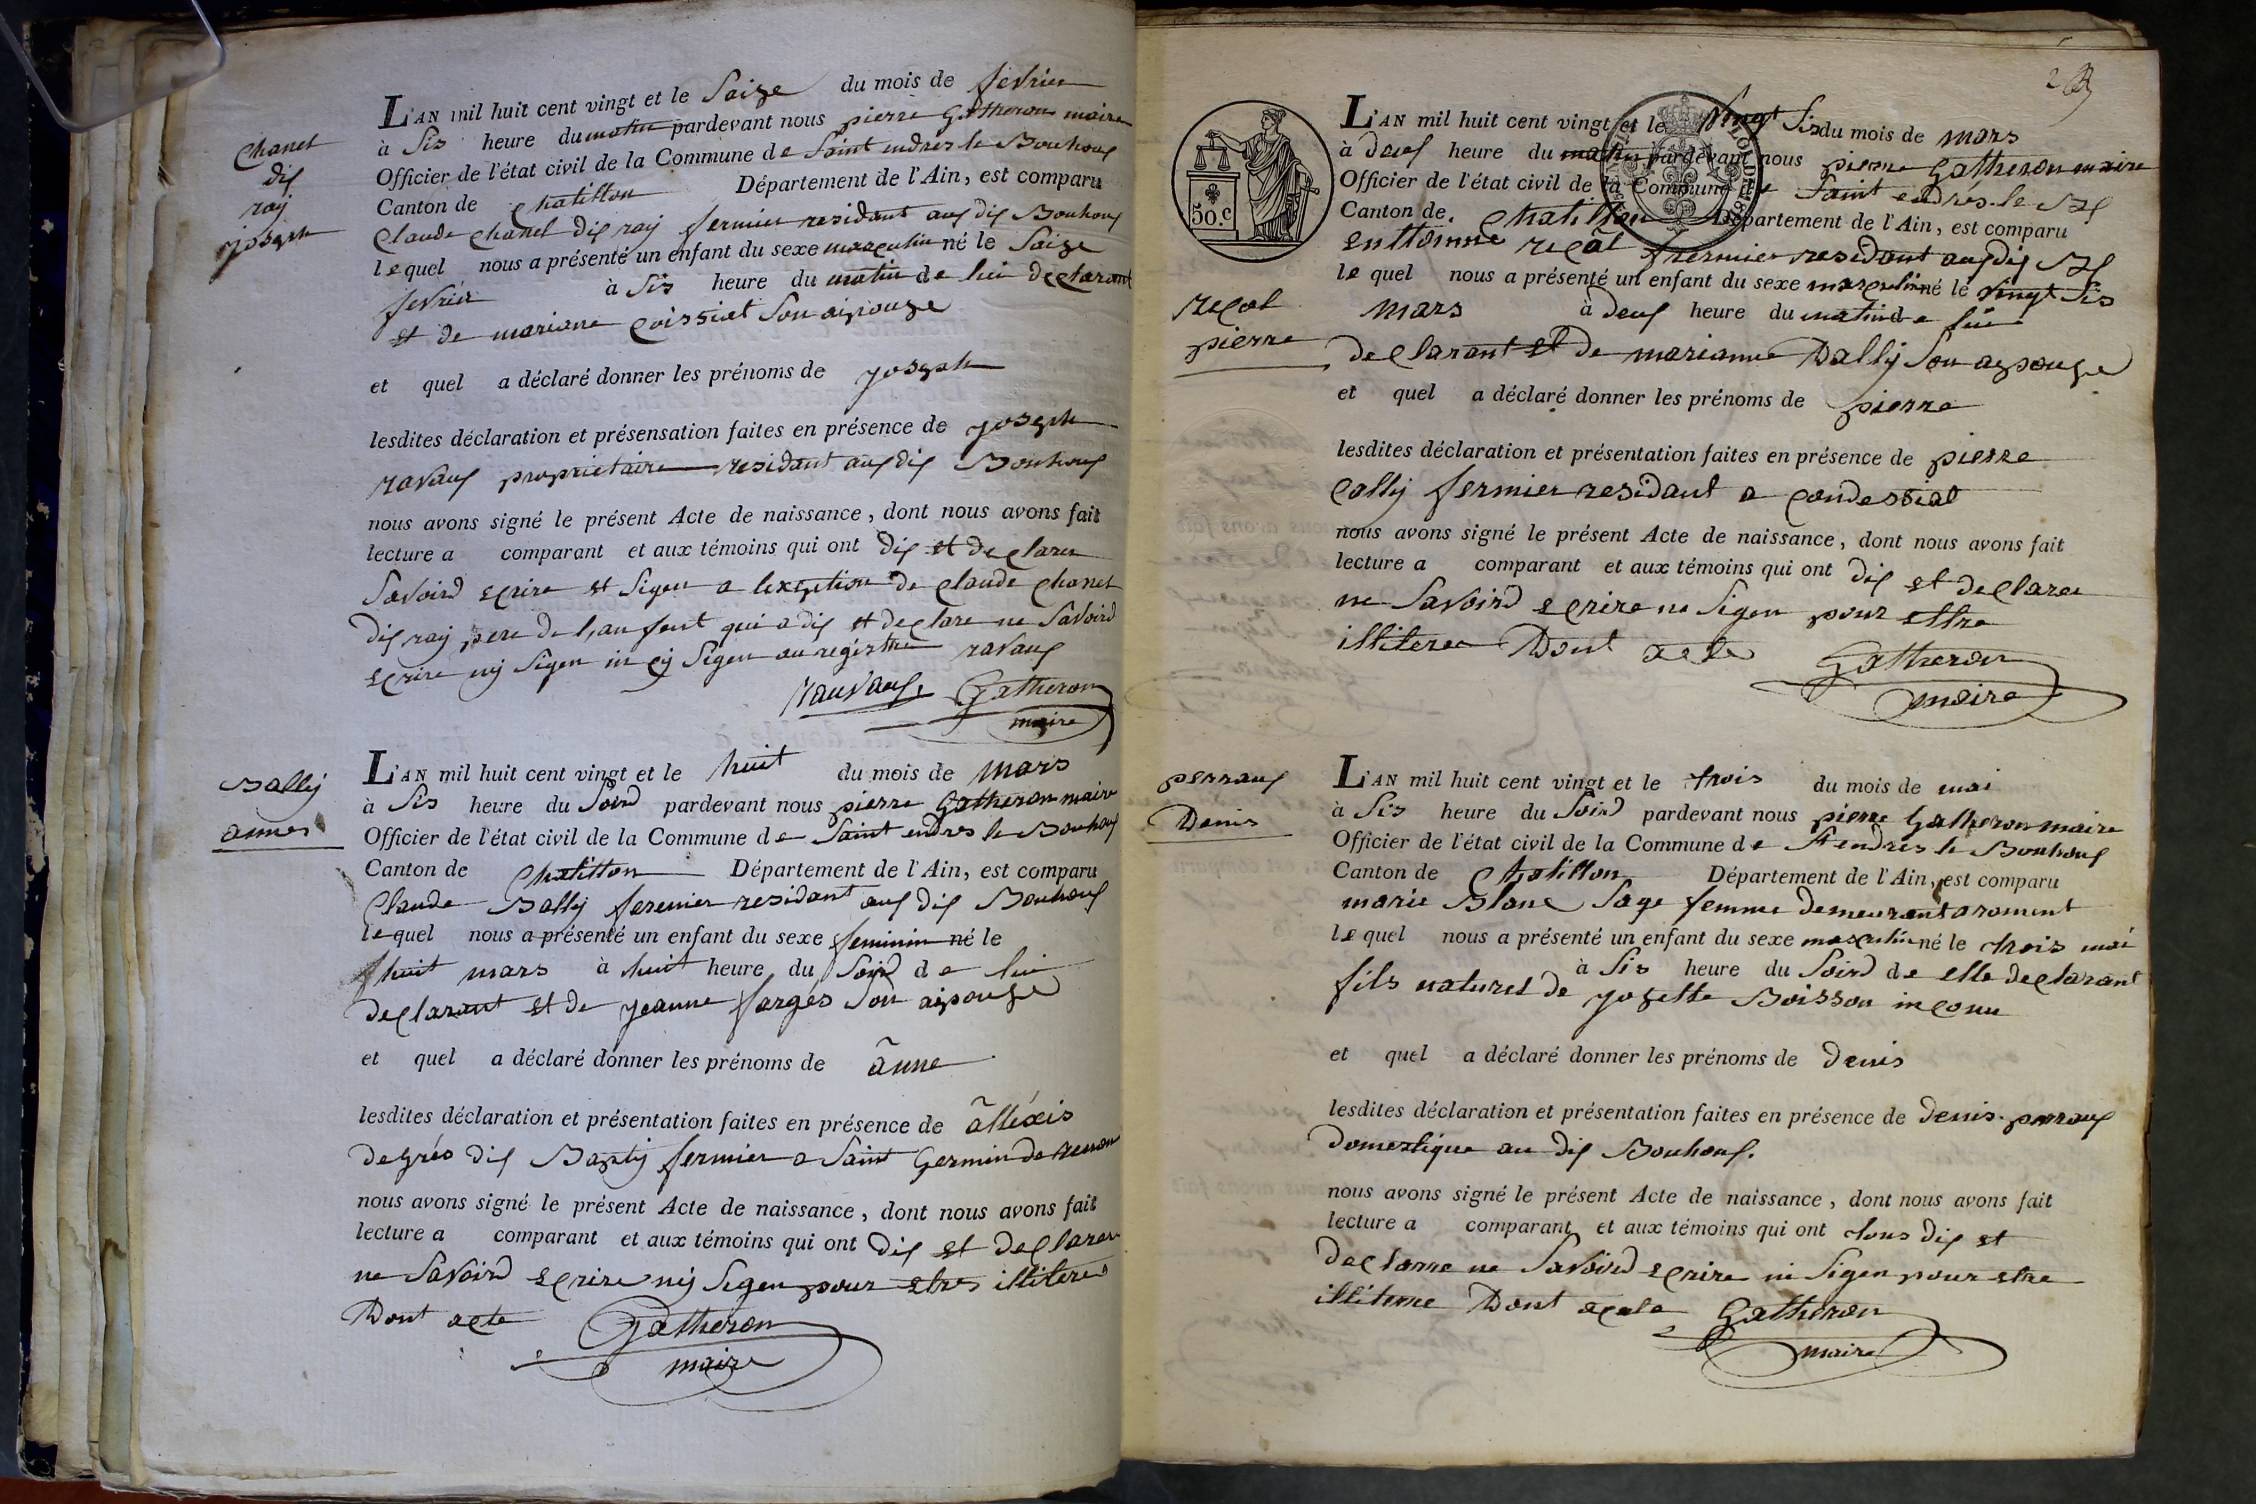 chanel
dis
ray
joseph
L'AN mil huit cent vingt et le saize du mois de fevrier
à sis heure du matin pardevant nous pierre Gatheron maire
Officier de l'état civil de la Commune de Saint endres le Bouhous
Canton de chatillon Département de l'Ain, est comparu
Claude chanel dis ray fermier residant aus dis Bouhous
lequel nous a présenté un enfant du sexe masculin né le saize
fevrier à sis heure du matin de lui declarant
et de mariane coissiat son aipouze
et quel a déclaré donner les prénoms de joseph
lesdites déclaration et présensation faites en présence de joseph
ravaus proprietaire residant aus dis Bouhous
nous avons signé le présent Acte de naissance, dont nous avons fait
lecture a comparant et aux témoins qui ont dis et declarer
savoird ecrire et sigen a lexsption de claude chanel
dis ray pere de l,anfent qui a dis et declare ne savoird
ecrire nij sigen in cy sigen au registre ravaus
rauvaus. Gatheron
maire
Bally
anne
L'AN mil huit cent vingt et le huit du mois de mars
à sis heure du soird pardevant nous pierre Gatheron maire
Officier de l'état civil de la Commune de Saint endres le Bouhous
Canton de chatillon Département de l'Ain, est comparu
Claude Bally feremier residant aus dis Bouhous
lequel nous a présenté un enfant du sexe feminin né le
huit mars à huit heure du soird de lui
declarant et de jeanne farges son aipouze
et quel a déclaré donner les prénoms de anne
lesdites déclaration et présentation faites en présence de alléxis
degrés dis Bapty fermier a Saint Germin de renon
nous avons signé le présent Acte de naissance, dont nous avons fait
lecture a comparant et aux témoins qui ont dis et declarer
ne savoird ecrire nij sigen pour etres illitere
Dont acte Gatheron
maire
50.c
recat
pierre
L'AN mil huit cent vingt et le vingt sis du mois de mars
à deus heure du matin pardevant nous pierre Gatheron maire
Officier de l'état civil de la Commune de Saint endrés le
Canton de chatillon Département de l'Ain, est comparu
enttoinne recat fremier residant aus dis
lequel nous a présenté un enfant du sexe masculin né le vingt sis
mars à deus heure du matin de lui
declarant et de marianne Bally son aepouze
et quel a déclaré donner les prénoms de pierre
lesdites déclaration et présentation faites en présence de pierre
cally fermier residant a condessiat
nous avons signé le présent Acte de naissance, dont nous avons fait
lecture a comparant et aux témoins qui ont dis et declarer
ne savoird ecrire ne sigen pour ettre
illiterer Dont acte Gatheron
maire
perraus
Denis
L'AN mil huit cent vingt et le trois du mois de mai
à sis heure du soird pardevant nous pierre Gatheron maire
Officier de l'état civil de la Commune de St endres le Bouhous
Canton de chatillon Département de l'Ain, est comparu
marie Blanc sage femme demeurant a roment
lequel nous a présenté un enfant du sexe masculin né le trois mai
à sis heure du soird de elle declarant
fils naturel de jozette Boisson inconu
et quel a déclaré donner les prénoms de denis
lesdites déclaration et présentation faites en présence de denis perraus
domestique au dis Bouhous.
nous avons signé le présent Acte de naissance, dont nous avons fait
lecture a comparant et aux témoins qui ont tous dis et
declarre ne savoird ecrire ni sigen pour etre
illiterre Dont acte Gatheron
maire